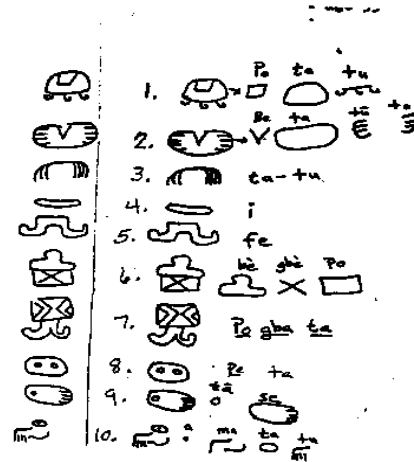 1. Po ta tu
2. Be ta tũ tu
3. ta-tu
4. i
5. fe
6. bè gbè Po
7. Po gba ta
8. Pe ta
9. tã se
10. a ma ta tu